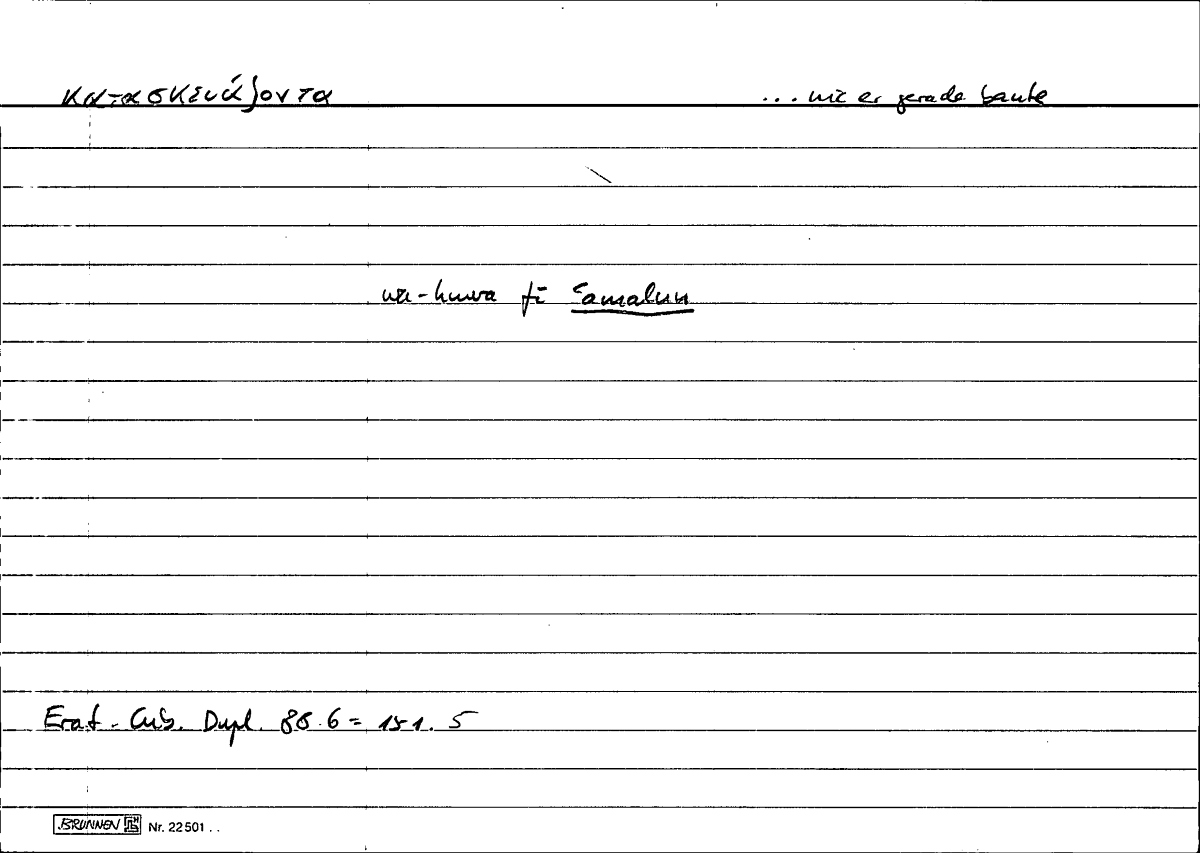 κατασκευάζοντα ... wie er gerade baute
wa-huwa fī ʿamalun
Erat. Cub. Dupl. 88.6 = 151.5
BRUNNEN Nr. 22501 . .